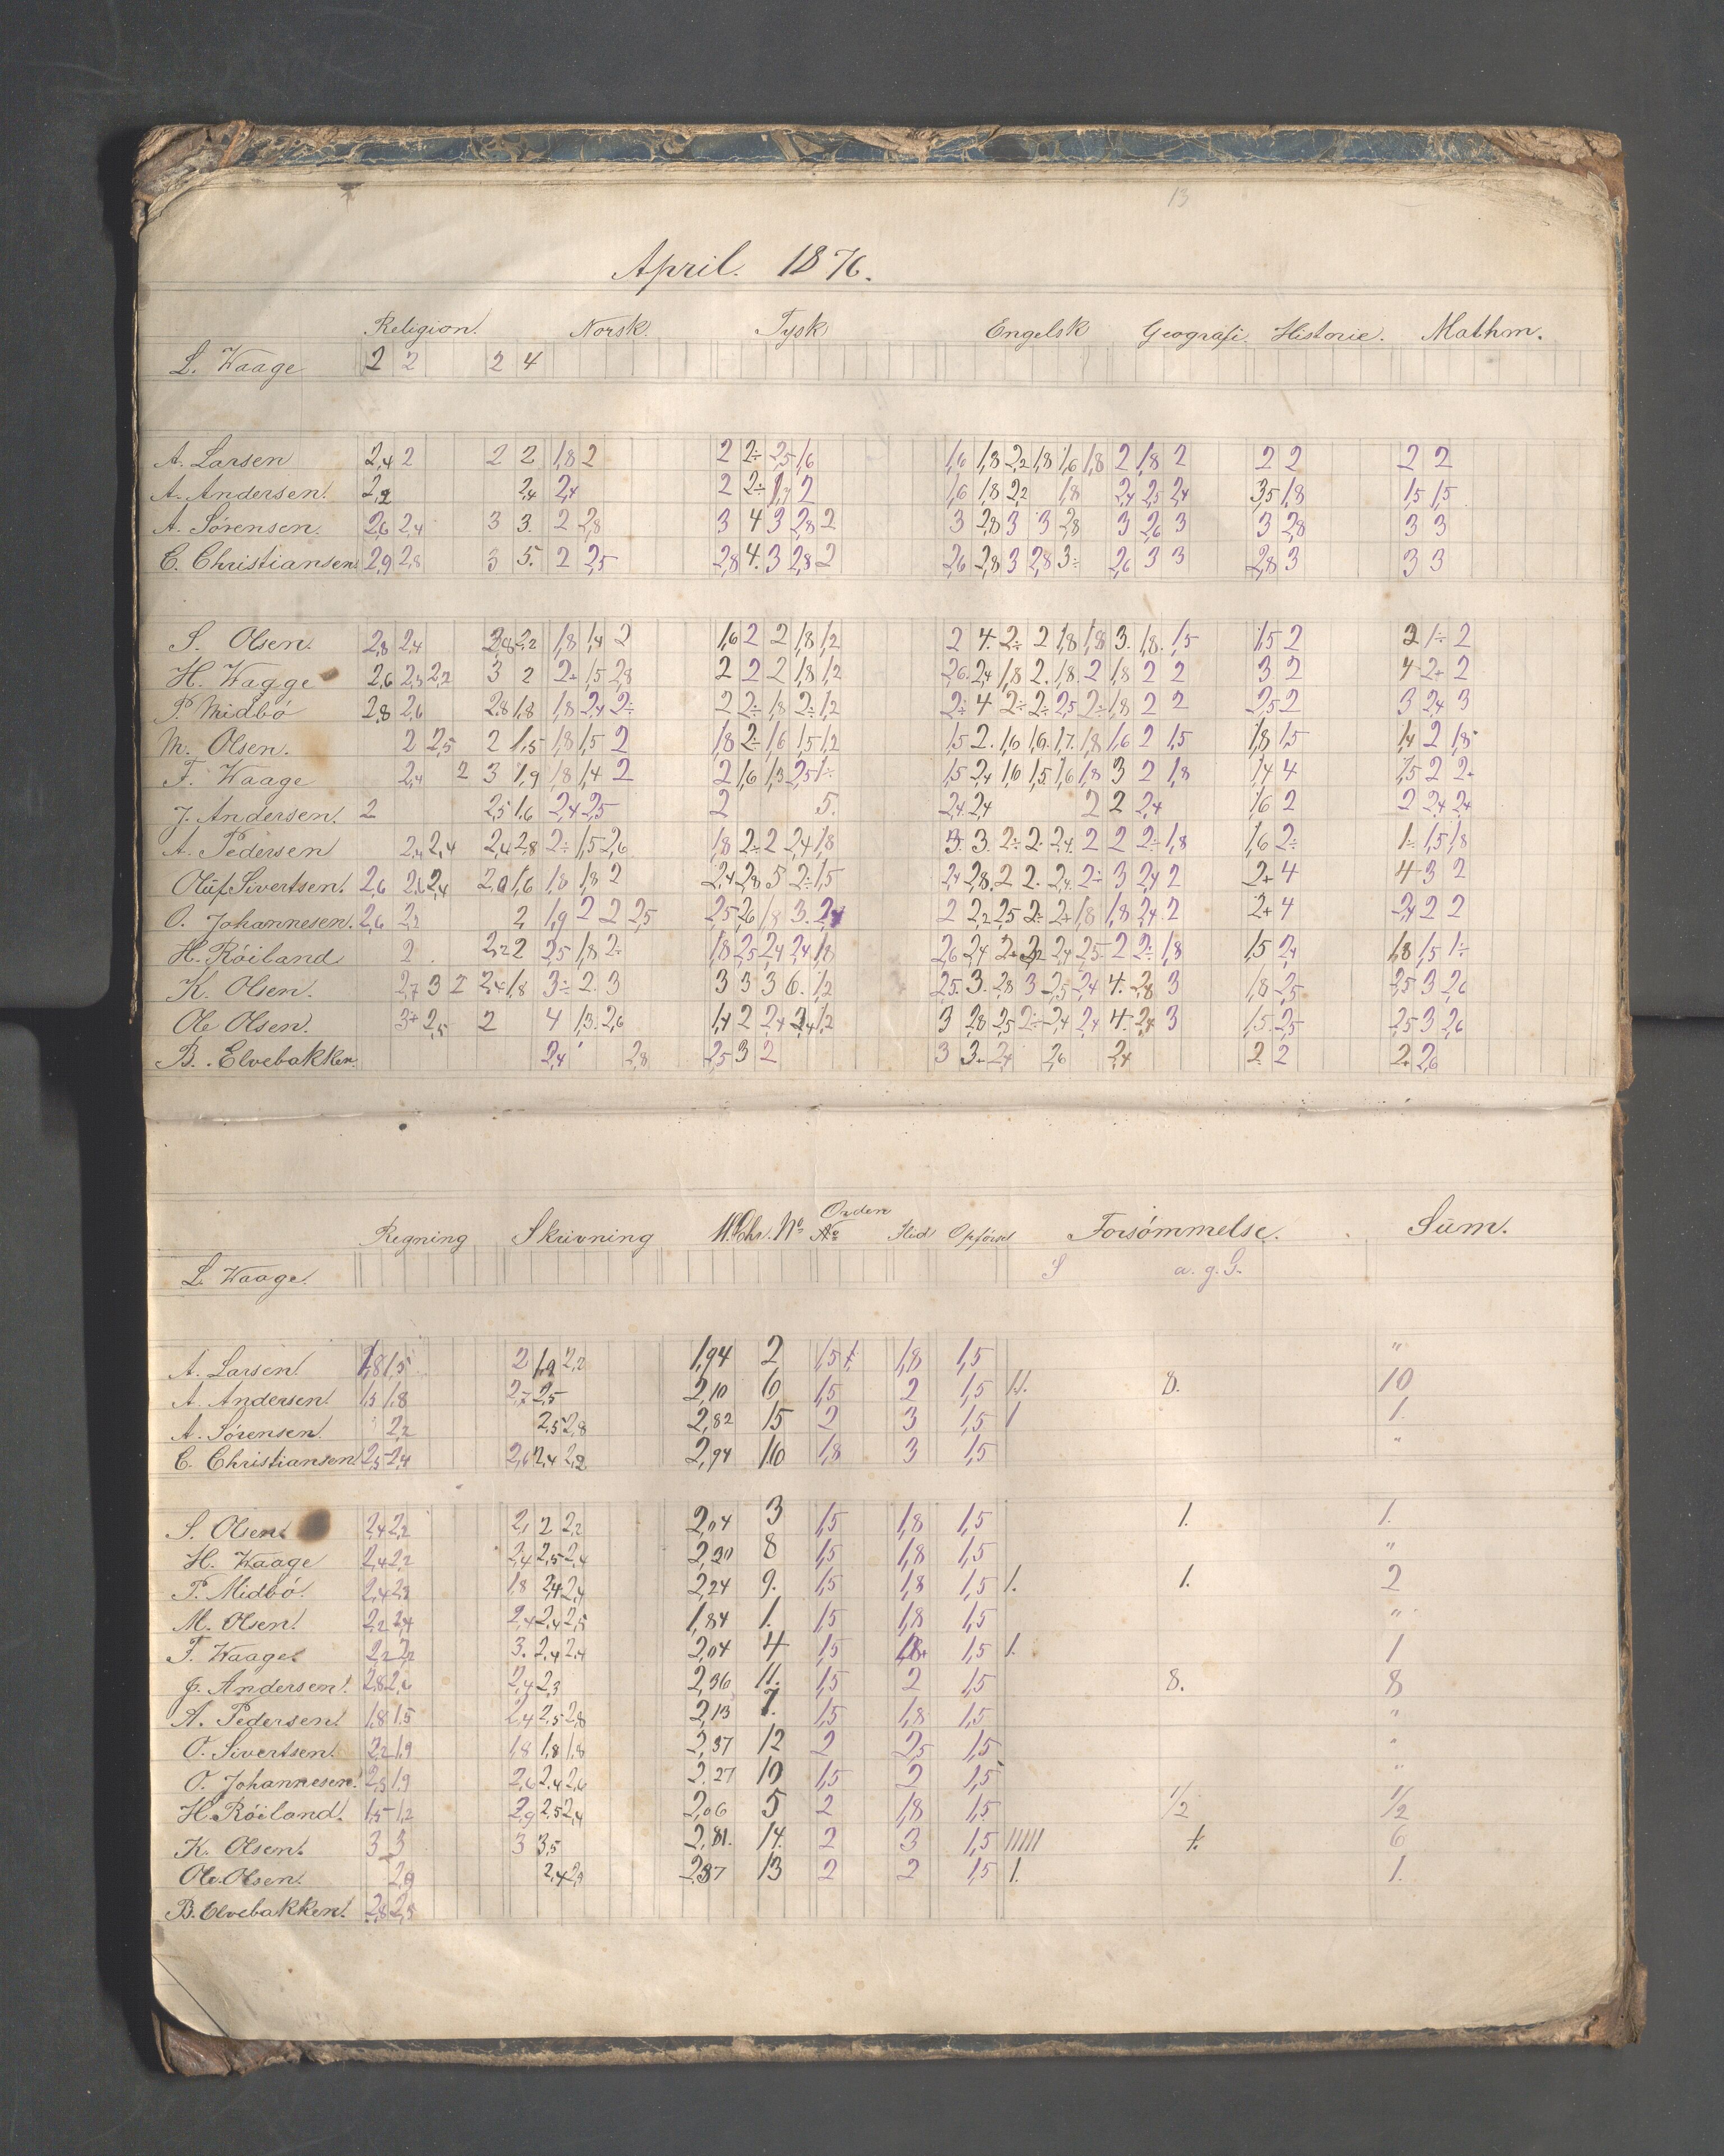 13
April. 1876.
Religion. Norsk. Tysk Engelsk Geografi. Historie. Mathm.
L. Waage 2 2 2 4
A. Larsen 2,4 2 2 2 1,8 2 2 2÷ 2,5 1,6 1,6 1,8 2,2 1,8 1,6 1,8 2 1,8 2 2 2 2 2
A. Andersen. 2,2 2,4 2,4 2 2÷ 1,7 2 1,6 1,8 2,2 1,8 2,4 2,5 2,4 3,5 1,8 1,5 1,5
A. Sørensen. 2,6 2,4 3 3. 2 2,8 3 4 3 2,8 2 3 2,8 3 3 2,8 3 2,6 3 3 2,8 3 3
C. Christiansen 2,9 2,8 3 5. 2 2,5 2,8 4. 3 2,8 2 2,6 2,8 3 2,8 3÷ 2,6 3 3 2,8 3 3 3
S. Olsen. 2,8 2,4 2,2 1,8 1,4 2 1,6 2 2 1,8 1,2 2 4. 2÷ 2 1,8 1,8 3. 1,8. 1,5 1,5 2 2 1÷ 2
H. Wagge 2,6 2,3 2,2 3 2 2+ 1,5 2,8 2 2 2 1,8 1,2 2,6. 2,4 1,8 2. 1,8. 2 1,8 2 2 3 2 4 2+ 2
P. Midbö 2,8 2,6 2,8 1,8 1,8 2,4 2÷ 2 2÷ 1,8 2÷ 1,2 2÷ 4 2÷ 2÷ 2,5 2÷ 1,8 2 2 2,5 2 3 2,4 3
M. Olsen. 2 2,5 2 1,5 1,8 1,5 2 1,8 2÷ 1,6 1,5 1,2 1,5 2. 1,6 1,6. 1,7. 1,8 1,6 2 1,5 1,8 1,5 1,4 2 1,8
F. Waage 2,4 2 3 1,9 1,8 1,4 2 2 1,6 1,3 2,5 1÷ 1,5 2,4 1,6 1,5 1,6 1,8 3 2 1,8 1,4 4 1,5 2 2+
J. Andersen. 2 2,5 1,6 2,4 2,5 2 5. 2,4 2,4 2 2 2,4 1,6 2 2 2,4 2,4
A. Pedersen 2,4 2,4 2,4 2,8 2÷ 1,5 2,6 1,8 2÷ 2 2,4 1,8 3. 3. 2÷ 2. 2,4. 2 2 2÷ 1,8 1,6 2÷ 1÷ 1,5 1,8
Oluf Sivertsen. 2,6 2,6 2,4 2,0 1,6 1,8 1,8 2 2,4 2,8 5 2÷ 1,5 2,4 2,8. 2 2. 2,4. 2÷ 3 2,4 2 2+ 4 4 3 2
O. Johannesen. 2,6 2,2 2, 1,9 2 2 2,5 2,5 2,6 1,8 3. 2,4 2 2,2 2,5 2÷ 2+ 1,8 1,8 2,4. 2 2+ 4 2,4 2 2
H. Röiland 2 . 2,2 2 2,5 1,8 2÷ 1,8 2,5 2,4 2,4 1,8 2,6 2,4 2+ 2,4 2,5 2 2÷ 1,8 1,5 2,4 1,8 1,5 1÷
K. Olsen. 2,7 3 2 2,4 1,8 3÷ 2. 3 3 3 3 6. 1,2 2,5. 3. 2,8 3 2,5 2,4 4. 2,8 3 1,8 2,5 2,5 3 2,6
Ole Olsen. 3+ 2,5 2 4 1,3. 2,6 1,4 2 2,4 2,4 1,2 3 2,8 2,5 2÷ 2,4 2,4 4. 2,4 3 1,5 2,5 2,5 3 2,6
B. Elvebakken. 2,4 2,8 2,5 3 2 3 3+ 2,4 2,6 2,4 2 2 2+ 2,6
Regning Skrivning Chr. No Orden Flid Opførsel Forsömmelse. Sum.
L. Waage. S a. g. G.
A. Larsen 1,8 1,5 2 1,9 2,2 1,94 2 1,5 1,8 1,5 "
A. Andersen. 1,5 1,8 2,7 2,5 2,10 6 1,5 2 1,5 11. 8. 10
A. Sörensen. 2,2 2,5 2,8 2,82 15 2 3 1,5 1 1.
C. Christiansen 2,5 2,4 2,6 2,4 2,2 2,94 16 1,8 3 1,5 "
S. Olsen. 2,4 2,2 2,1 2 2,2 2,04 3 1,5 1,8 1,5 1. 1.
H. Waage 2,4 2,2 2,4 2,5 2,4 2,20 8 1,5 1,8 1,5 "
P. Midbö. 2,4 2,3 1,8 2,4 2,4 2,24 9. 1,5 1,8 1,5 1. 1. 2
M. Olsen. 2,2 2,4 2,4 2,4 2,5 1,84 1. 1,5 1,8 1,5 "
F. Waage. 2,2 2,2 3. 2,4 2,4 2,04 4 1,5 1,8+ 1,5 1. 1
J. Andersen. 2,8 2,6 2,4 2,3 2,36 11. 1,5 2 1,5 8. 8
A. Pedersen. 1,8 1,5 2,4 2,5 2,8 2,13 7. 1,5 1,8 1,5 "
O. Sivertsen. 2,2 1,9 1,8 1,8 1,8 2,37 12 2 2,5 1,5 "
O. Johannesen. 2,3 1,9 2,6 2,4 2,6 2,27 10 1,5 2 1,5 "
H. Röiland. 1,5 1,2 2,9 2,5 2,4 2,06 5 2 1,8 1,5 1/2 1/2
K. Olsen. 3 3 3 3,5 2,81. 14. 2 3 1,5 11111 1. 6
Ole Olsen. 2,9 2,4 2,3 2,37 13 2 2 1,5 1. 1.
B. Elvebakken. 2,8 2,8